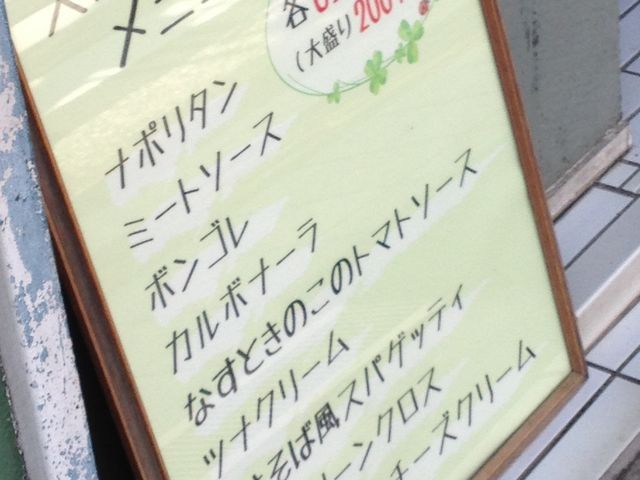 メニ
各
(大盛り200
ナポリタン
ミートソース
ボンゴレ
カルボナーラ
なすときのこのトマトソース
ツナクリーム
そば風スパゲッティ
ーンクロス
チーズクリーム